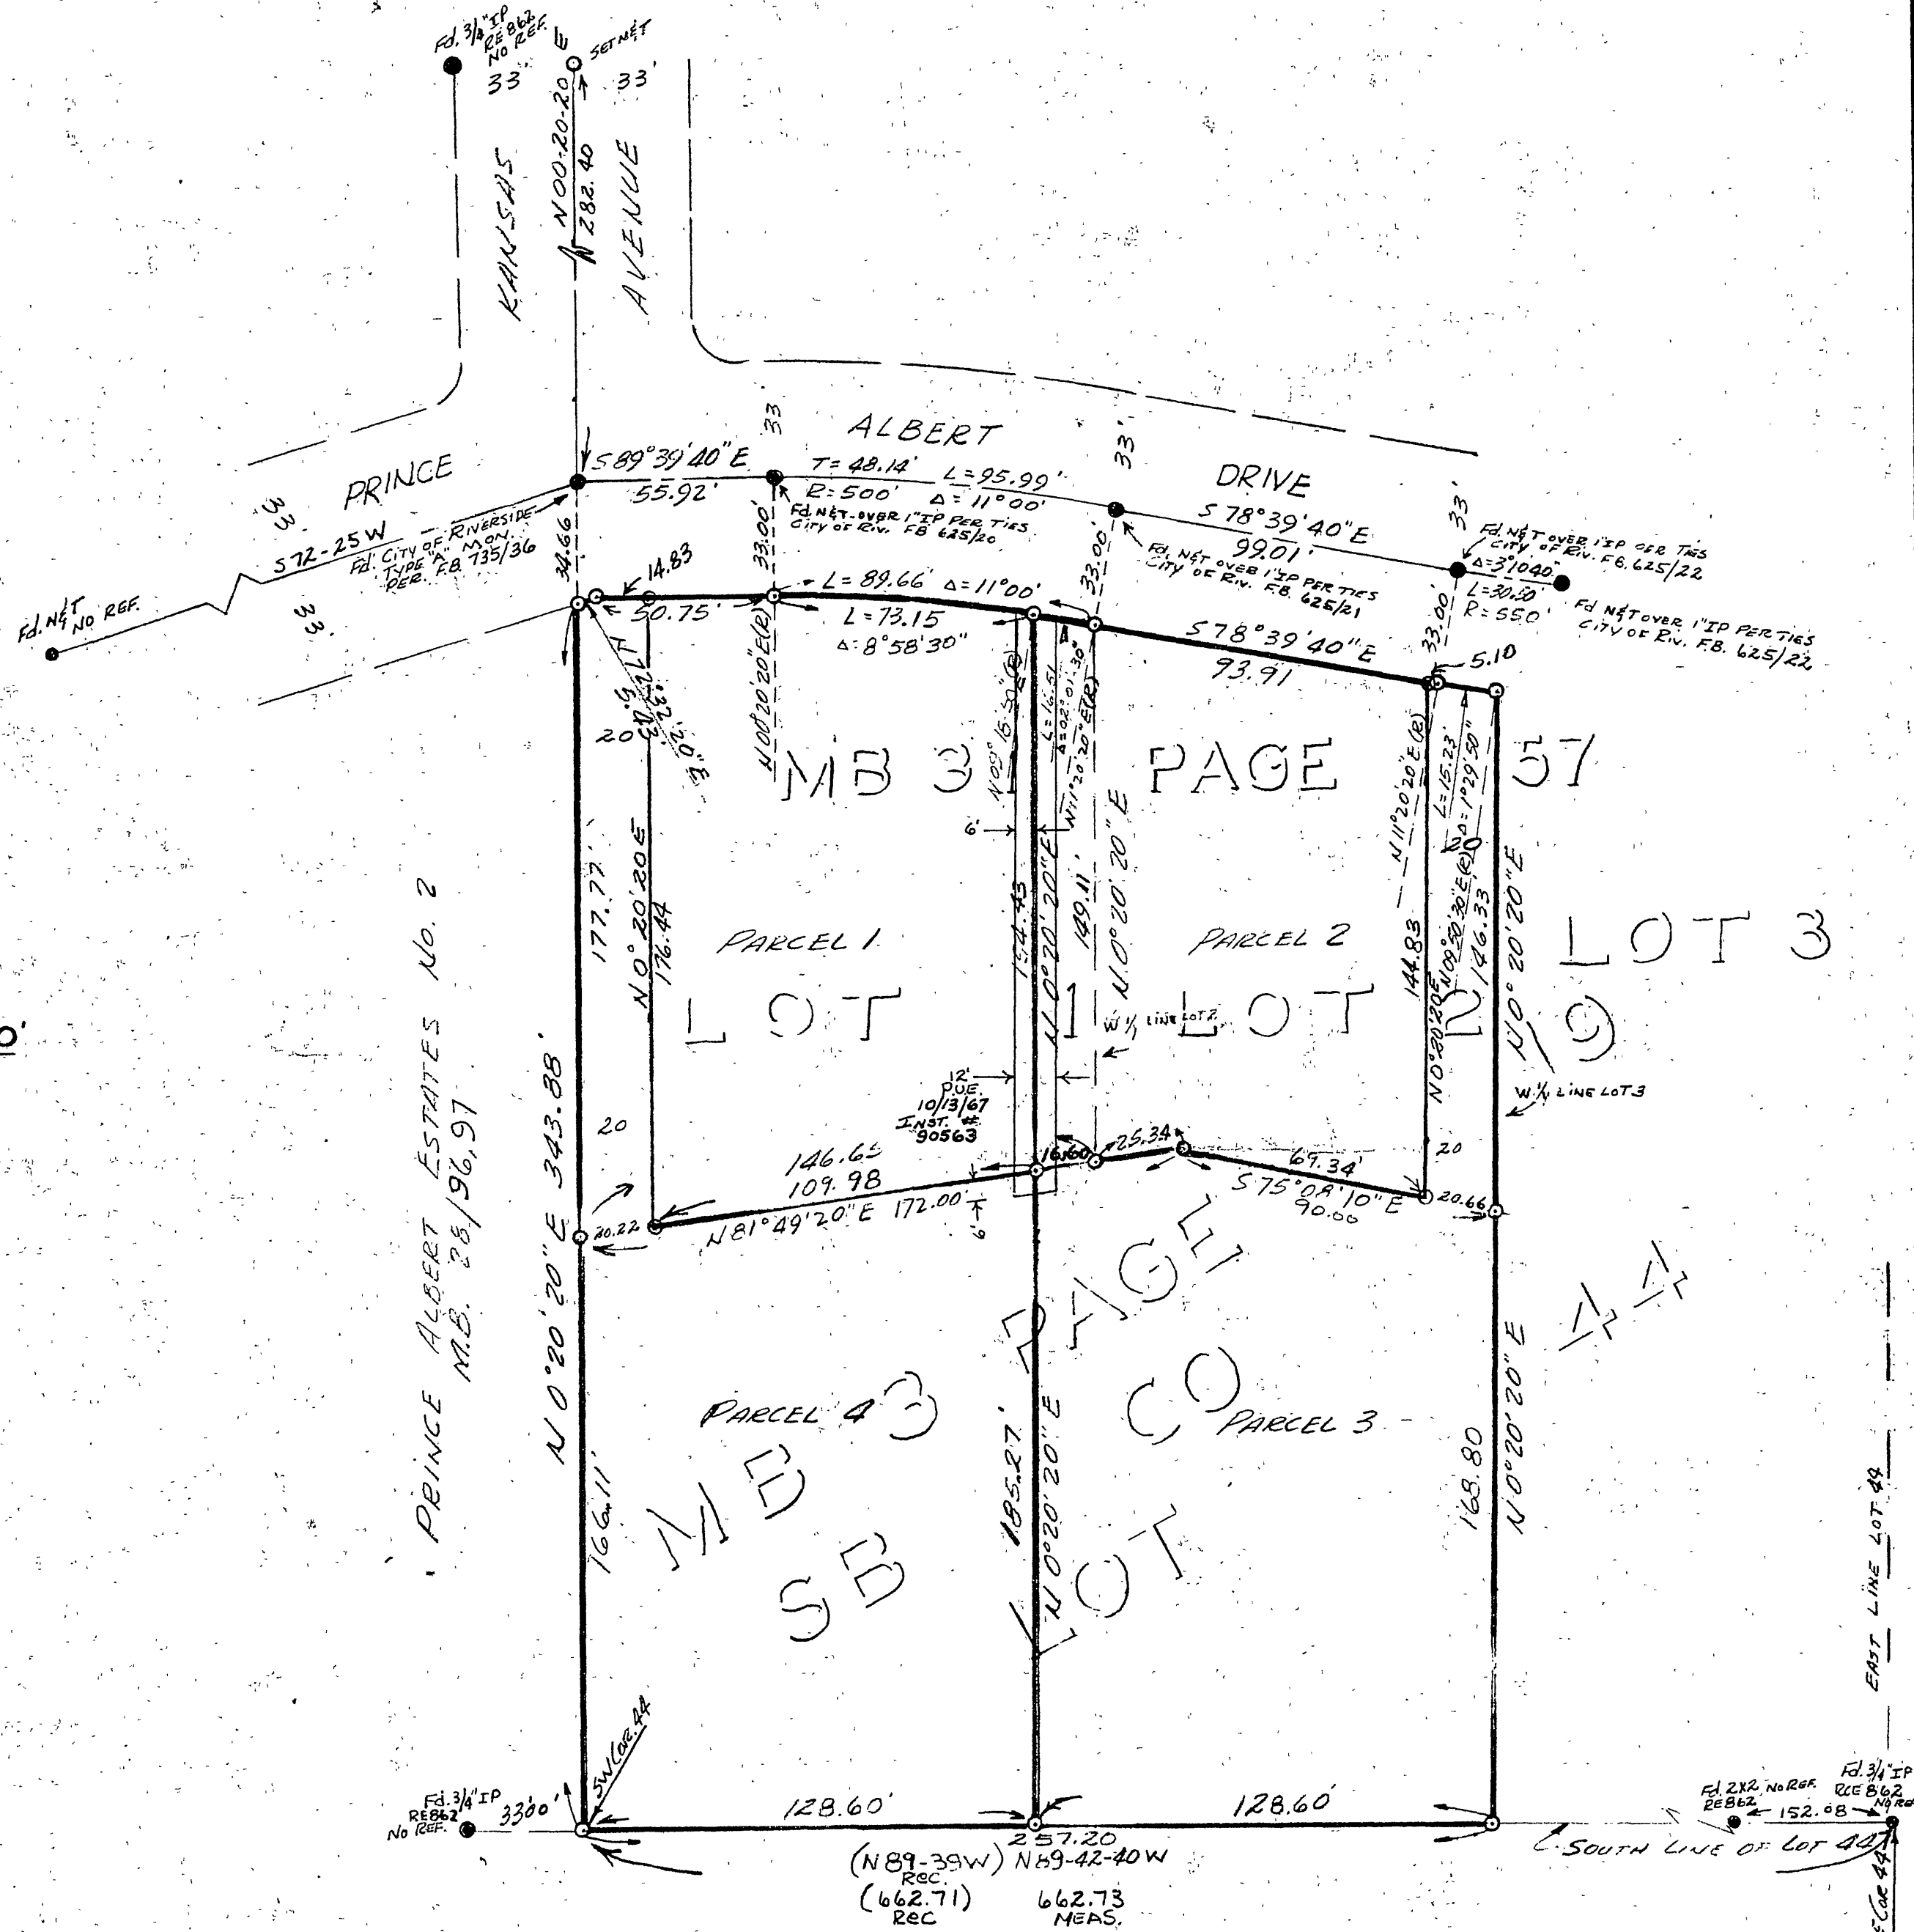 Fd. 3/4" IP
RE 862
NO REF.
SET N&T
33'
33'
KANSAS
AVENUE
N00-20-20 E
282.40
PRINCE
ALBERT
DRIVE
33
33
33
33'
33'
S 72-25 W
Fd. CITY OF RIVERSIDE
TYPE "A" MON.
PER. F.B. 735/36
Fd. N&T
NO REF.
S 89°39'40" E
55.92'
T= 48.14'
L=95.99'
R=500'
Δ= 11°00'
Fd. N&T. OVER 1" IP PER TIES
CITY OF RIV. FB 625/20
S 78°39'40" E
99.01'
Fd. N&T OVER 1" IP PER TIES
CITY OF RIV. F.B. 625/21
Fd. N&T OVER 1" IP PER TIES
CITY OF RIV. F.B. 625/22
Δ=3°10'40"
L=30.50'
R=550'
Fd N&T OVER 1" IP PER TIES
CITY OF RIV. F.B. 625/22
34.66
14.83
50.75'
33.00'
33.00'
33.00'
L= 89.66'
Δ=11°00'
L=73.15
Δ=8°58'30"
S 78°39'40" E
93.91
5.10
20
N 00°20'20"E(R)
L=16.51
Δ=02°01'30"
N11°20'20"E(R)
N 11°20'20"E(R)
L=15.23'
Δ=1°29'50"
20
N09°50'30"E(R)
MB 31
PAGE
57
6'
177.77'
N 0°20'20 E
176.44
154.43
N 0°20'20" E
149.11'
N 0°20'20" E
144.83
N 0°20'20"E
146.33
N 0°20'20" E
PARCEL 1
PARCEL 2
LOT 1
LOT 2
LOT 3
9
W'LY LINE LOT 2
W'LY LINE LOT 3
12'
P.U.E.
10/13/67
INST. #
90563
PRINCE ALBERT ESTATES No. 2
M.B. 28/96,97
N 0°20'20" E 343.88'
20
20
20.22
146.65
109.98
N 81°49'20" E 172.00'
6'
16.60
25.34
69.34'
S 75°08'10" E
90.00
20.66
MB 3 PAGE
SB CO
LOT 44
PARCEL 4
PARCEL 3
166.11'
185.27'
N 0°20'20" E
168.80
N 0°20'20" E
EAST LINE LOT 44
SW COR. 44
Fd. 3/4" IP
RE862
NO REF.
33.00'
128.60'
128.60'
257.20
(N 89-39W) N89-42-40 W
REC.
(662.71) 662.73
REC MEAS.
Fd. 2X2 NO REF.
RE862
152.08
Fd. 3/4" IP
RCE 862
SOUTH LINE OF LOT 44